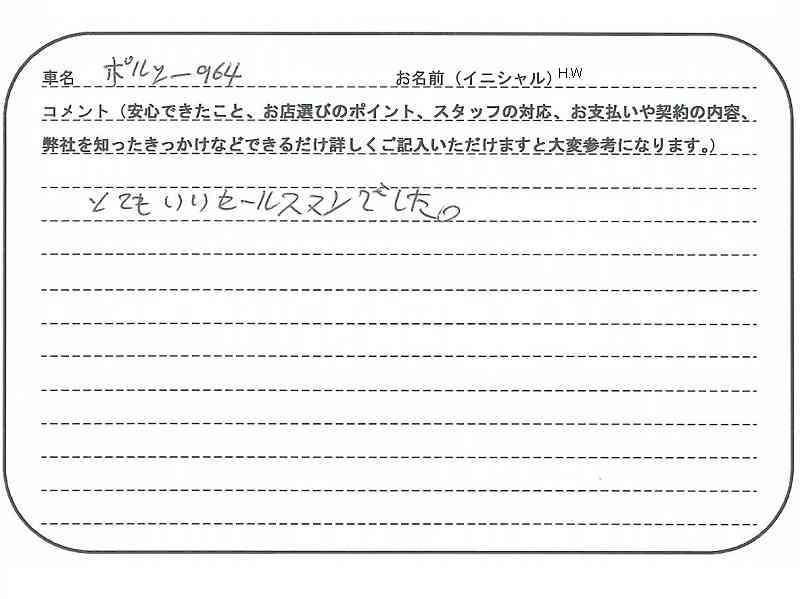 車名 ポルシェー964 お名前（イニシャル） H.W
コメント（安心できたこと、お店選びのポイント、スタッフの対応、お支払いや契約の内容、
弊社を知ったきっかけなどできるだけ詳しくご記入いただけますと大変参考になります。）
とてもいいセールスマンでした。